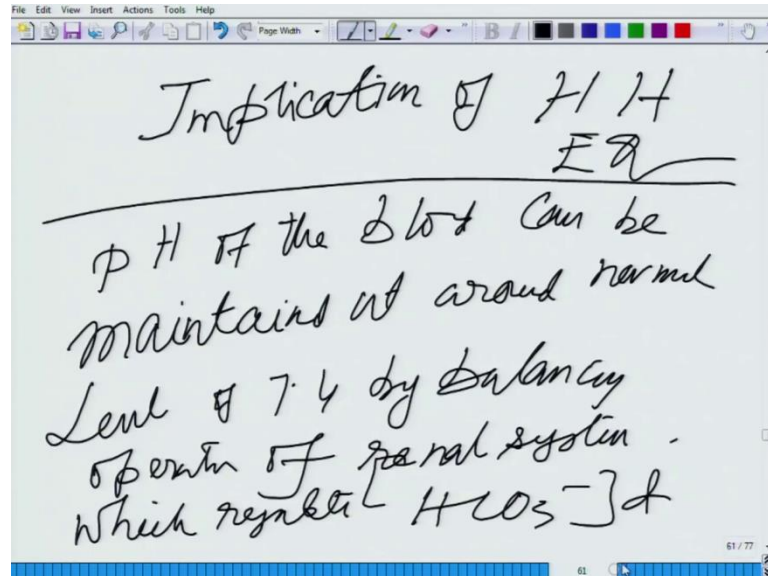 File Edit View Insert Actions Tools Help
Page Width B I
Implication of H H
EQ
pH of the blood can be
maintains at around normal
Level of 7.4 by balancing
operatn of renal system.
which regulate [HCO3-] &
61 / 77
61